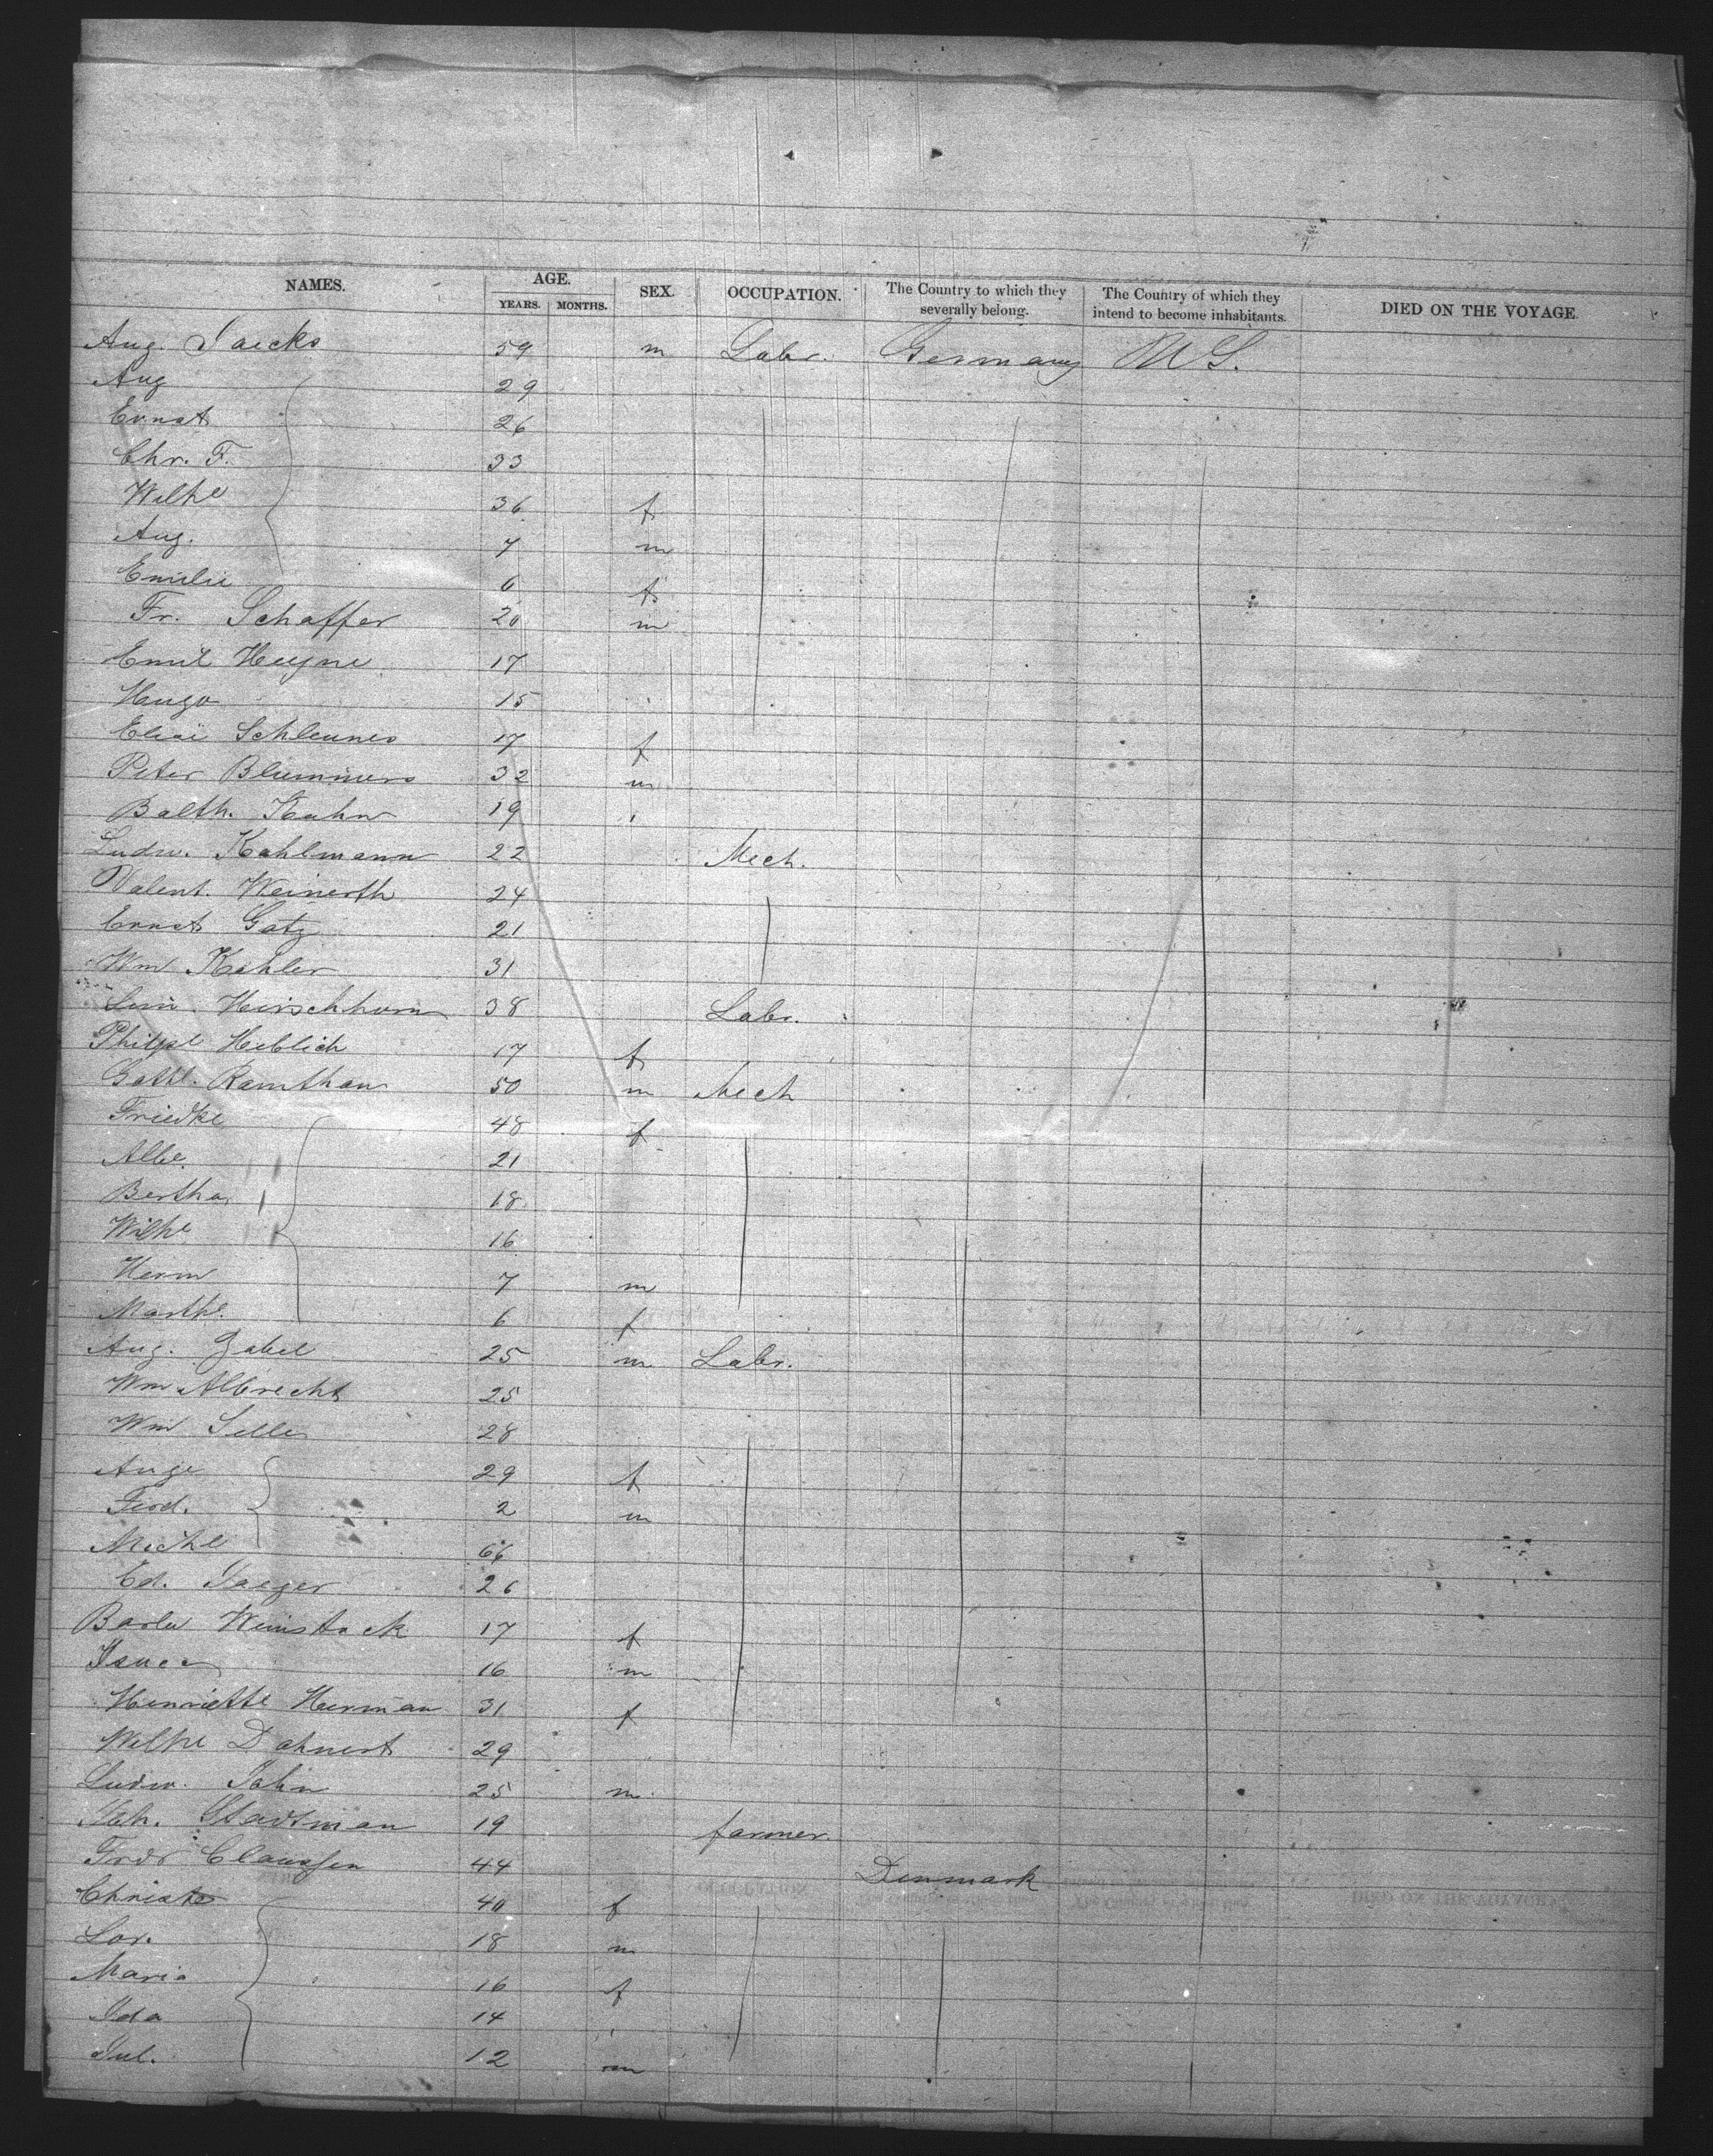 NAMES. AGE. YEARS. MONTHS. SEX. OCCUPATION. The Country to which they severally belong. The Country of which they intend to become inhabitants. DIED ON THE VOYAGE.
Aug. Jaecks 59 m Labr. Germany U S.
Aug 29
Ernst 26
Chr. F. 33
Wilhe 36 f
Aug. 7 m
Emilie 6 f
Fr. Schaffer 20 m
Emil Heyne 17
Hugo 15
Elise Schleunes 17 f
Peter Blummers 32 m
Balth. Hahn 19
Ludw. Kohlmann 22 Mech.
Valent. Weinerth 24
Ernst Gotz 21
Wm Kohler 31
Hirschhorn 38 Labr.
Heblich 17 f
Gottl. Ramthun 50 m Mech
Friedke 48 f
Albe. 21
Bertha 18
Wilhe 16
Herm 7 m
Marthe. 6 f
Aug. Zabel 25 m Labr.
Wm Albrecht 25
Wm Selle 28
Auge 29 f
Ferd. 2 m
Michl 66
Ed. Jaeger 26
Weinstock 17 f
16 m
Henriette Herman 31 f
Wilhe Dohnert 29
Ludw. John 25 m
Stadtman 19 farmer.
Fredr Claussen 44 Denmark
Christe 40 f
Lor. 18 m
Maria 16 f
Ida 14
Jul. 12 m